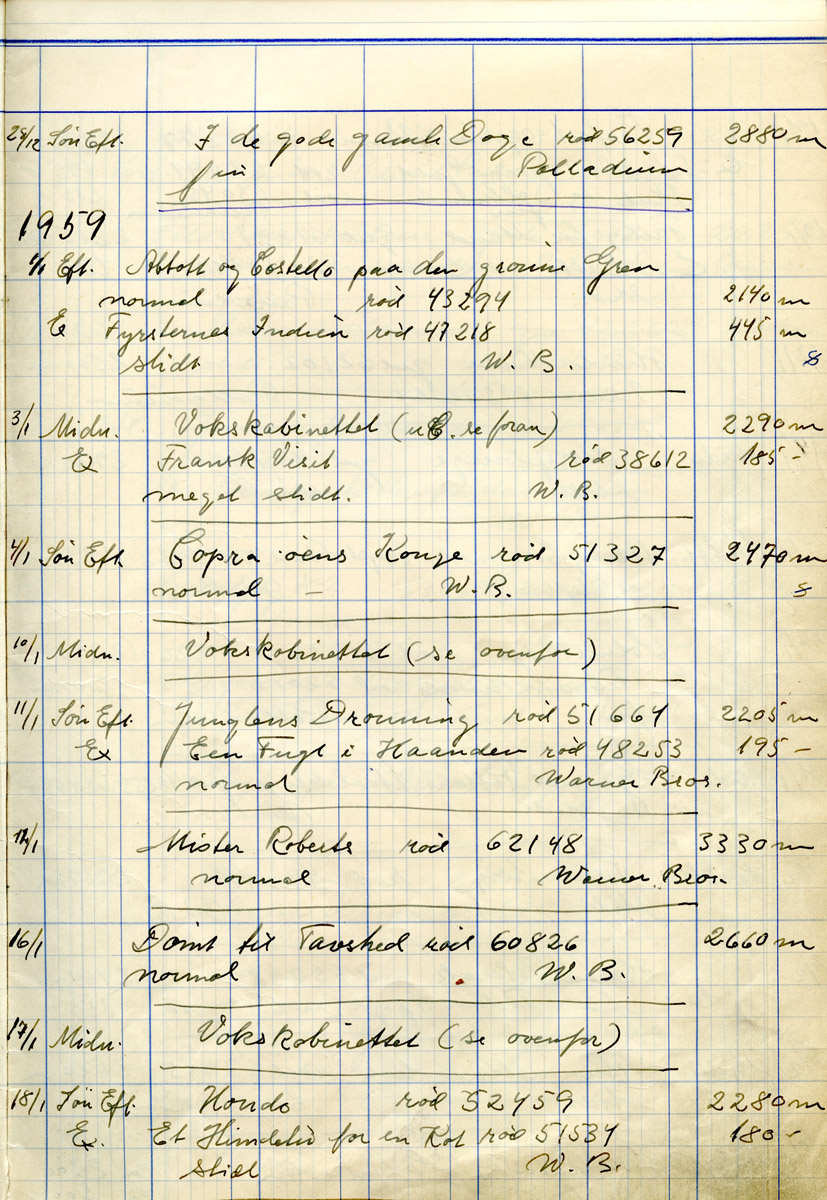 28/12 Søn Eft. I de gode gamle Dage rød 56259 2880 m
fin Palladium
1959
1/1 Eft. Abbott og Costello paa den grønne Gren
normal rød 43294 2140 m
E Fyrsternes Indien rød 47218 445 m
slidt W. B.
3/1 Midn. Vokskabinettet (u E. se foran) 2290 m
Ex Fransk Visit rød 38612 185 -
meget slidt. W. B.
4/1 Søn Eft Copra øens Konge rød 51327 2470 m
normal – W. B.
10/1 Midn. Vokskabinettet (se ovenfor)
11/1 Søn Eft. Junglens Dronning rød 51664 2205 m
Ex Een Fugl i Haanden rød 48253 195 –
normal Warner Bros.
12/1 Mister Roberts rød 62148 3330 m
normal Warner Bros.
16/1 Dømt til Tavshed rød 60826 2660 m
normal W. B.
17/1 Midn. Vokskabinettet (se ovenfor)
18/1 Søn Eft. Hondo rød 52459 2280 m
Ex. Et Hundeliv for en Kat rød 51534 180 -
slidt W. B.